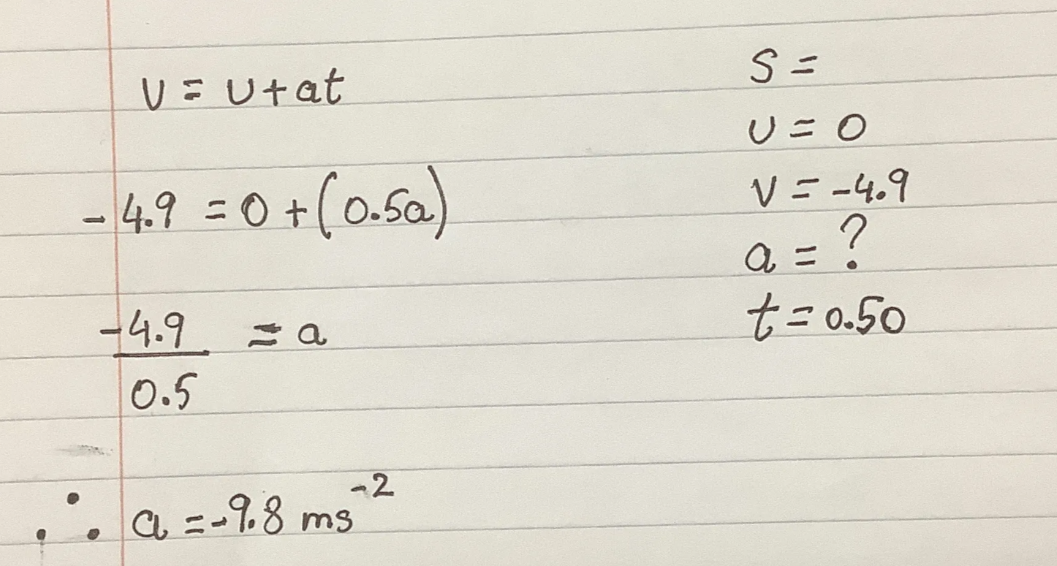 v = u + at
-4.9 = 0 + (0.5a)
-4.9/0.5 = a
∴ a = -9.8 ms⁻²
S =
u = 0
v = -4.9
a = ?
t = 0.50